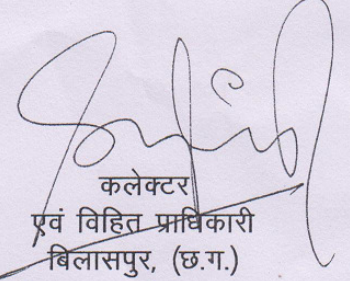 कलेक्टर
एवं विहित प्राधिकारी
बिलासपुर, (छ.ग.)